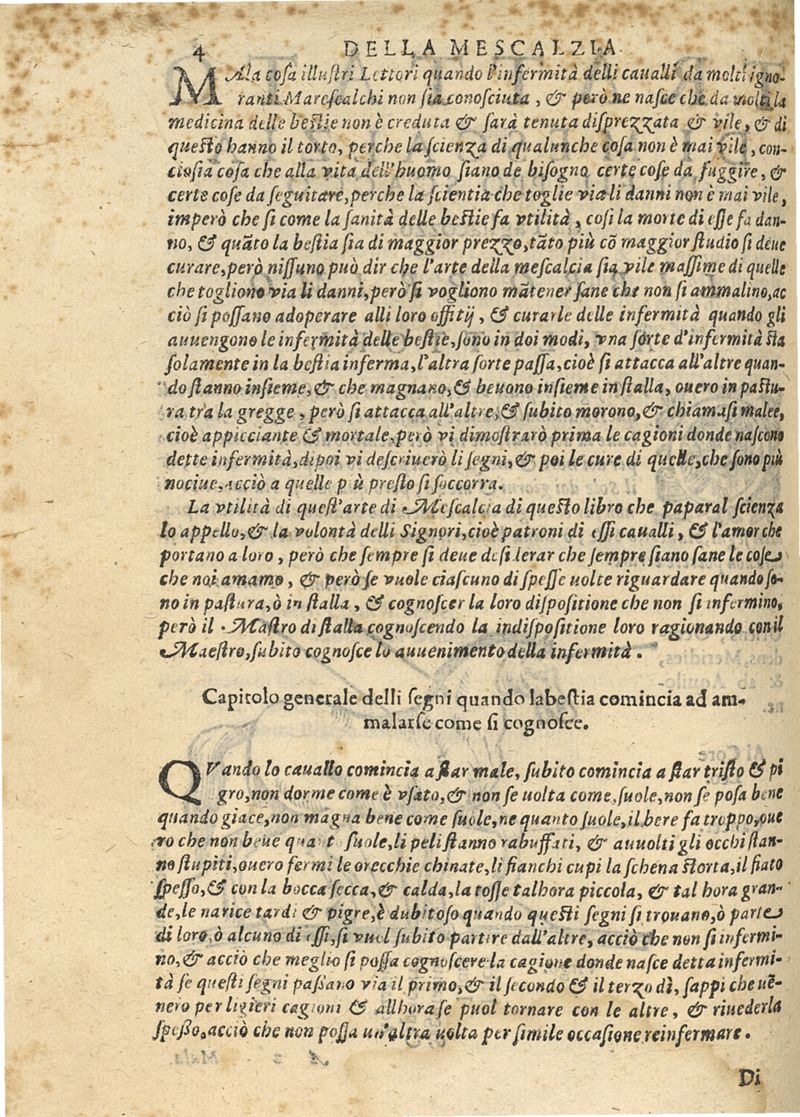 4 DELLA MESCALZIA
MAla cosa illustri Lettori quando l'infermità delli caualli da molti igno-
ranti Marescalchi non sia conosciuta, & però ne nasce che da molti la
medicina delle bestie non è creduta & sarà tenuta disprezzata & vile, & di
questo hanno il torto, perche la scienza di qualunche cosa non è mai vile, con-
ciosia cosa che alla vita dell'huomo siano de bisogno certe cose da fuggire, &
certe cose da seguitare, perche la scientia che toglie via li danni non è mai vile,
imperò che si come la sanità delle bestie fa vtilità, cosi la morte di esse fa dan-
no, & quãto la bestia sia di maggior prezzo, tãto più cõ maggior studio si deue
curare, però nissuno può dir che l'arte della mescalcia sia vile massime di quelle
che togliono via li danni, però si vogliono mãtener sane che non si ammalino, ac
ciò si possano adoperare alli loro offitij, & curarle delle infermità quando gli
auuengono le infermità delle bestie, sono in doi modi, vna sorte d'infermità sta
solamente in la bestia inferma, l'altra sorte passa, cioè si attacca all'altre quan-
do stanno insieme, & che magnano, & beuono insieme in stalla, ouero in pastu-
ra tra la gregge, però si attacca all'altre, & subito morono, & chiamasi malee,
cioè appicciante & mortale, però vi dimostrarò prima le cagioni donde nascono
dette infermità, dipoi vi descriuerò li segni, & poi le cure di quelle, che sono più
nociue, acciò a quelle più presto si soccorra.
La vtilità di quest'arte di Mescalcia di questo libro che paparal scienza
lo appello, & la volontà delli Signori, cioè patroni di essi caualli, & l'amor che
portano a loro, però che sempre si deue desiderar che sempre siano sane le cose
che noi amamo, & però se vuole ciascuno di spesse uolte riguardare quando so-
no in pastura, ò in stalla, & cognoscer la loro dispositione che non si infermino,
però il Mastro di stalla cognoscendo la indispositione loro ragionando con il
Maestro, subito cognosce lo auuenimento della infermità.
Capitolo generale delli segni quando la bestia comincia ad am-
malarse come si cognosce.
QVando lo cauallo comincia a star male, subito comincia a star tristo & pi
gro, non dorme come è vsato, & non se uolta come suole, non se posa bene
quando giace, non magna bene come suole, ne quanto suole, il bere fa troppo, oue
ro che non beue quant suole, li peli stanno rabuffati, & auuolti gli occhi stan-
no stupiti, ouero fermi le orecchie chinate, li fianchi cupi la schena storta, il fiato
spesso, & con la bocca secca, & calda, la tosse talhora piccola, & tal hora gran-
de, le narice tardi & pigre, è dubitoso quando questi segni si trouano, ò parte
di loro, ò alcuno di essi, si vuol subito partire dall'altre, acciò che non si infermi-
no, & acciò che meglio si possa cognoscere la cagione donde nasce detta infermi-
tà se questi segni passano via il primo, & il secondo & il terzo dì, sappi che uẽ-
nero per ligieri cagioni & allhora se puol tornare con le altre, & riuederla
spesso, acciò che non possa un'altra uolta per simile occasione reinfermare.
Di